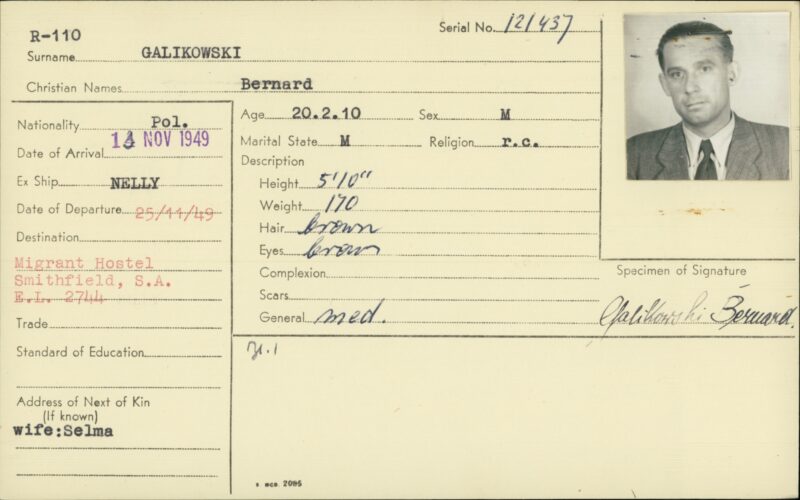 R-110
Serial No. 121437
Surname GALIKOWSKI
Christian Names Bernard
Nationality Pol.
Date of Arrival 14 NOV 1949
Ex Ship NELLY
Date of Departure 25/11/49
Destination
Migrant Hostel
Smithfield, S.A.
E.L. 2744
Trade
Standard of Education
Address of Next of Kin
(If known)
wife:Selma
Age 20.2.10 Sex M
Marital State M Religion r.c.
Description
Height 5'10"
Weight 170
Hair brown
Eyes brown
Complexion
Scars
General med.
Specimen of Signature
Galikowski Bernard.